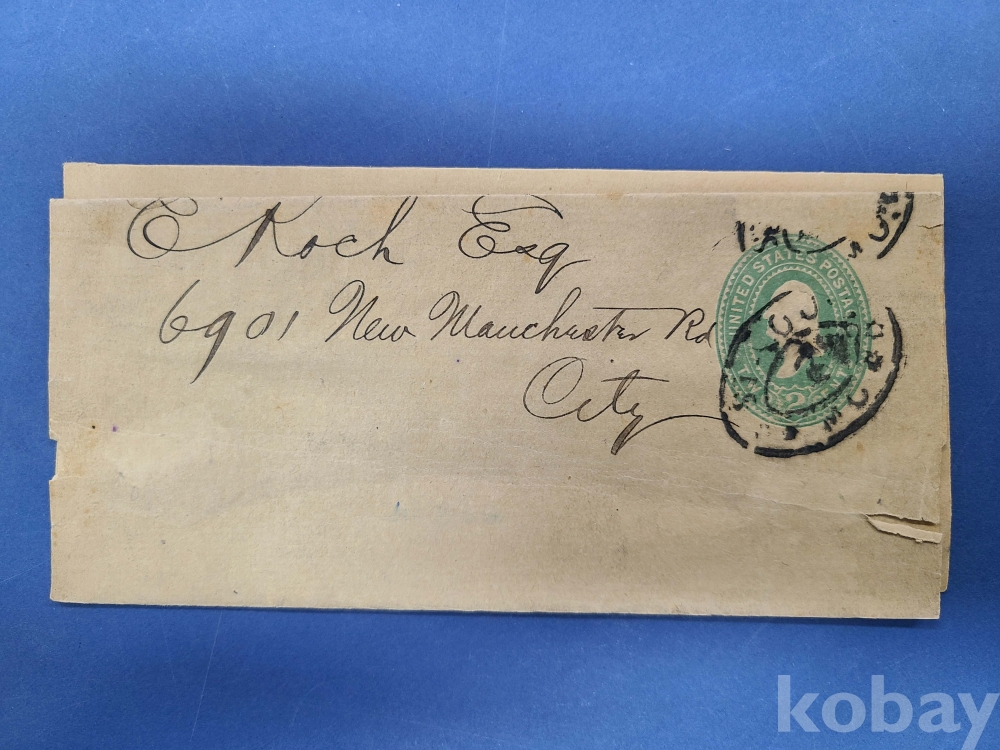 C Koch Esq
6901 New Manchester Rd
City
UNITED STATES POSTA
TW 2 ENT
kobay